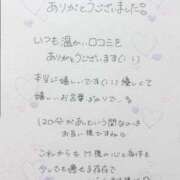 ありがとうございました!
いつも温かい口コミを
ありがとうございます(；；)
本当に嬉しいです(；；)優しくて
嬉しいお言葉ばかりで、
120分があという間なのは
お互い様ですね
これからも 様の心と身体を
少しでも癒せる存在で